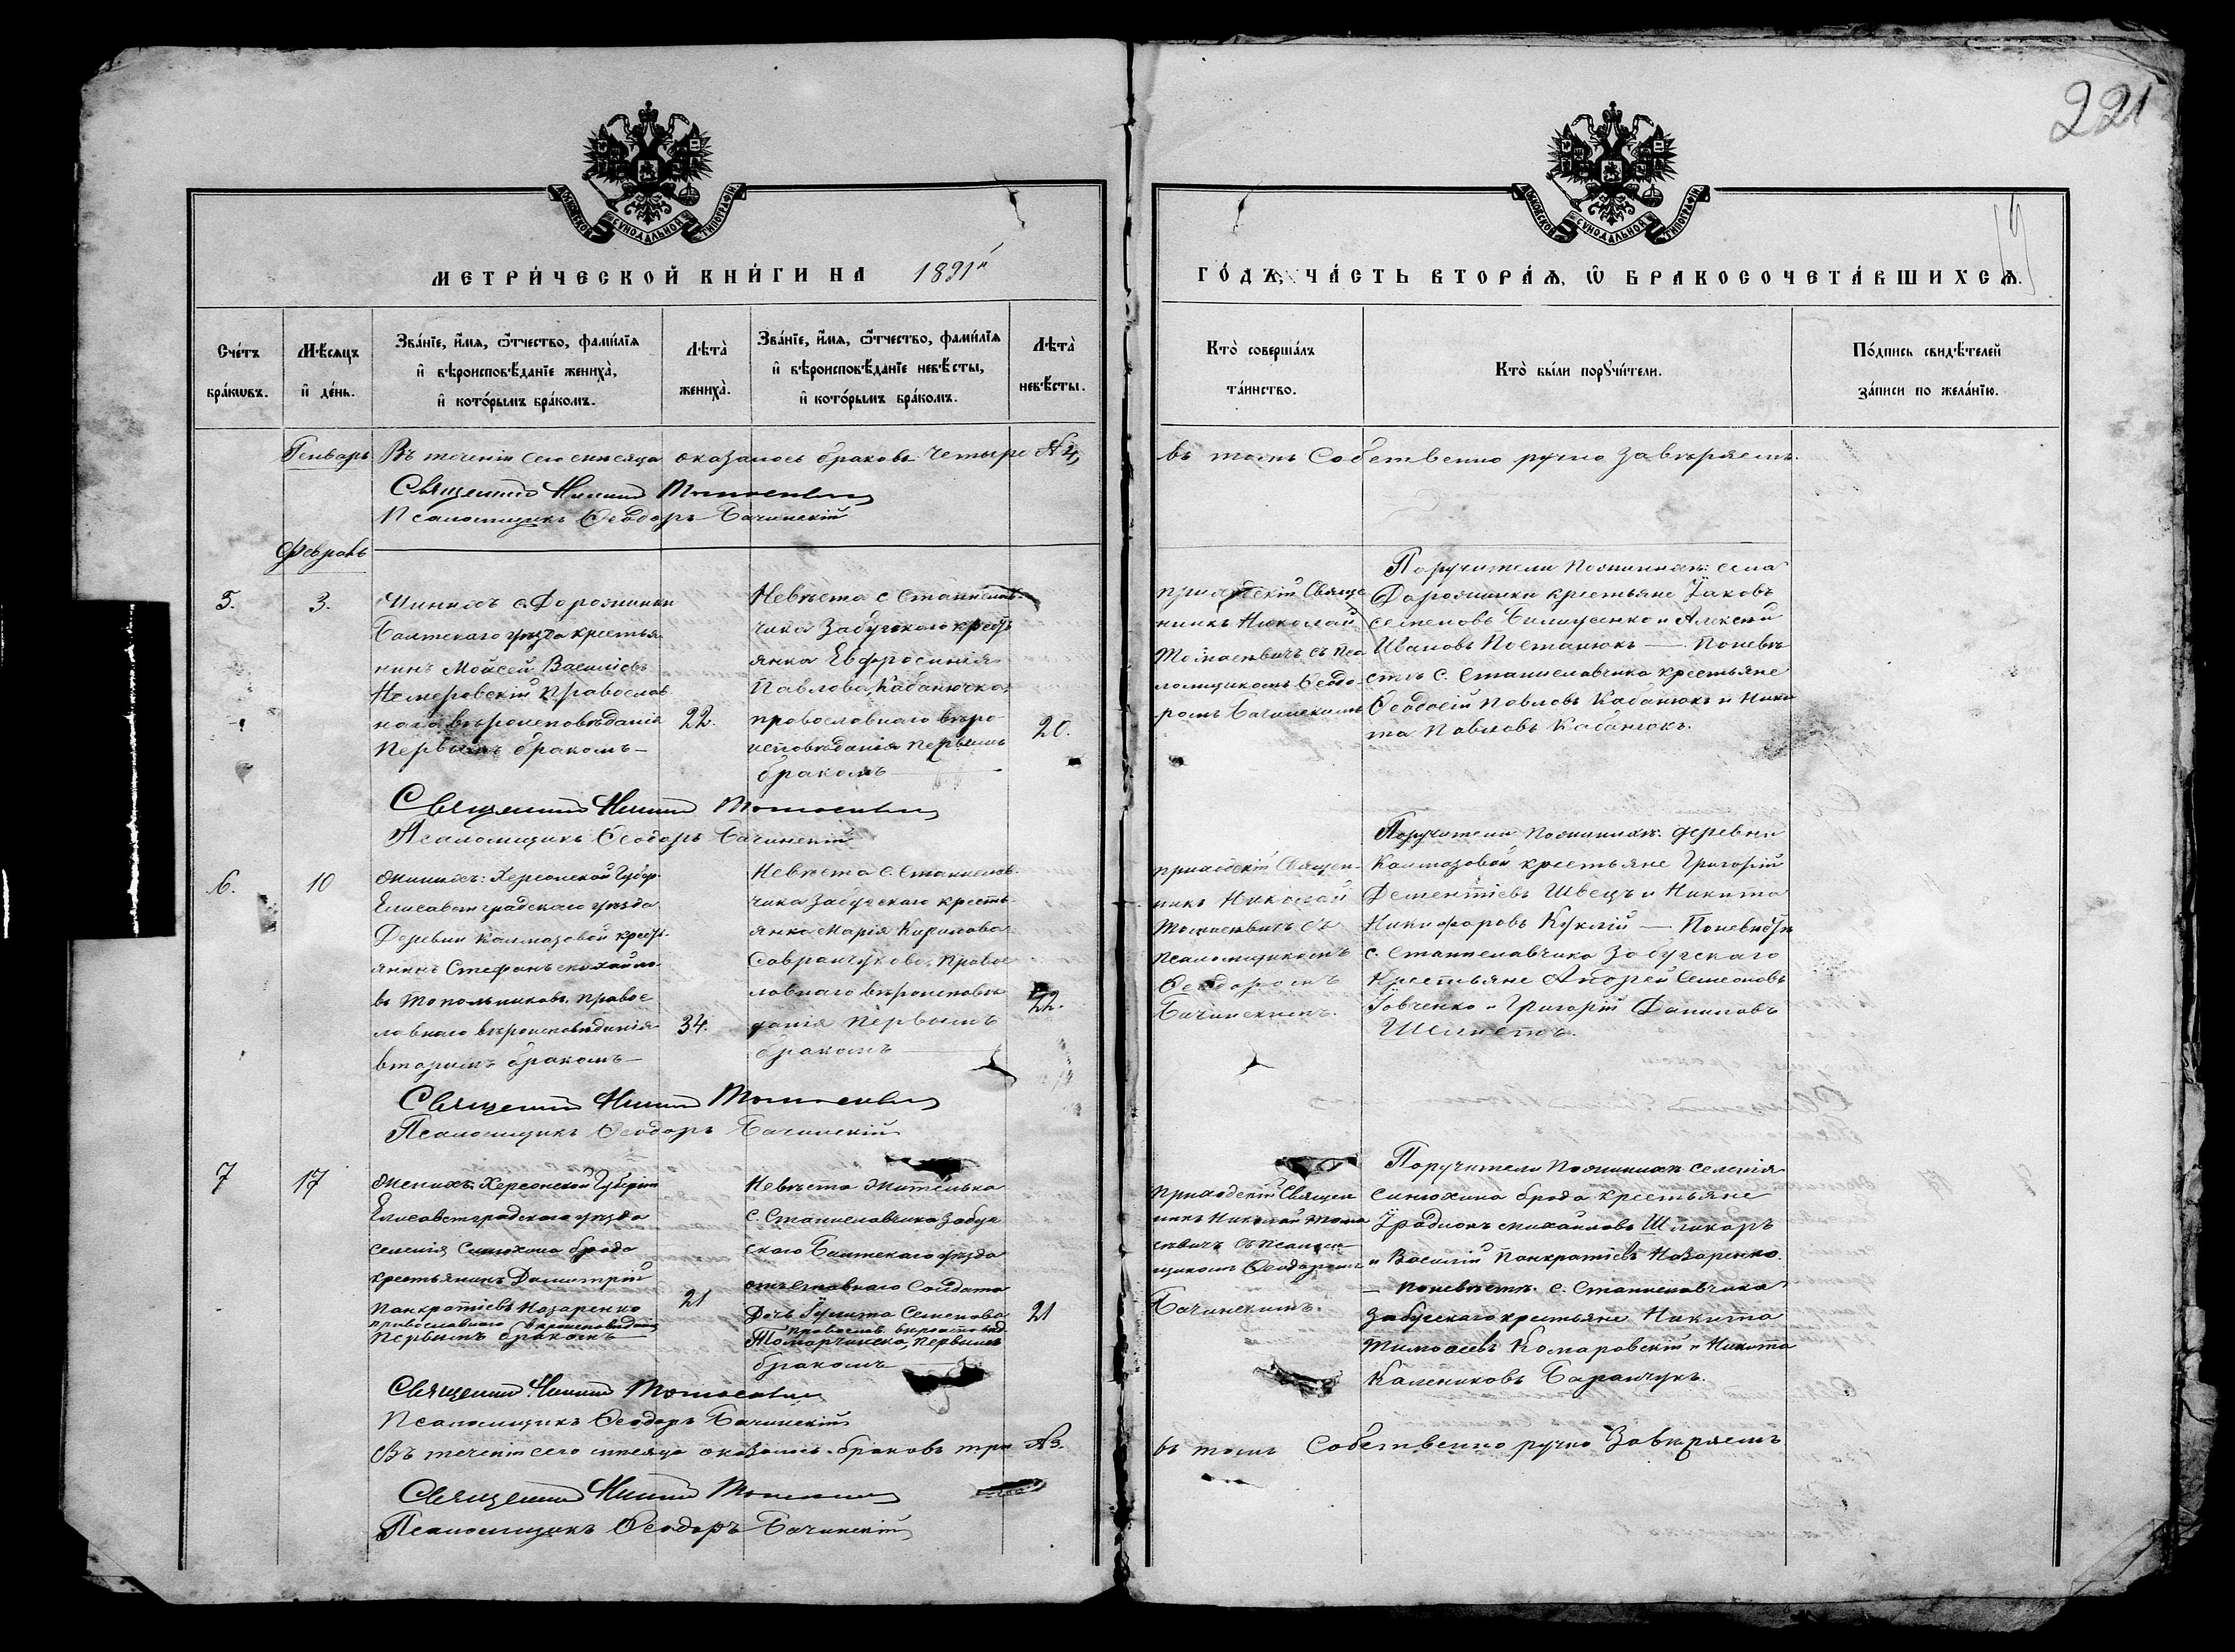 221
МОСКОВСКОЙ СѴНОДАЛЬНОЙ ТИПОГРАФІИ
МОСКОВСКОЙ СѴНОДАЛЬНОЙ ТИПОГРАФІИ
МЕТРИ́ЧЕСКОЙ КНИ́ГИ НА 1891й
ГО́ДЪ, ЧА́СТЬ ВТОРА́Ѧ, Ѽ БРАКОСОЧЕТА́ВШИХСѦ.
Сче́тъ бра́кωвъ.
Мѣ́сѧцъ и҆ де́нь.
Зва́нїе, и҆́мѧ, ѻ҆́тчество, фами́лїѧ
и҆ вѣроисповѣ́данїе жениха̀,
и҆ кото́рымъ бра́комъ.
Лѣта̀ жениха̀.
Зва́нїе, и҆́мѧ, ѻ҆́тчество, фами́лїѧ
и҆ вѣроисповѣ́данїе невѣ́сты,
и҆ кото́рымъ бра́комъ.
Лѣта̀ невѣ́сты.
Кто̀ соверша́лъ та́инство.
Кто̀ бы́ли порꙋчи́тели.
По́дпись свидѣ́телей
за́писи по жела́нїю.
Генварь Въ теченіи сего мѣсяца оказалось браковъ четыре №4,
въ томъ Собственно ручно завѣряемъ.
Священникъ Николай Томасевичъ
Псаломщикъ Ѳеодоръ Бачинскій
Февраль
5. 3.
Жинихъ с. Дорожинки
Балтскаго уѣзда крестья
нинъ Мойсей Василіевъ
Немеровскій православ
наго вѣроисповѣданія
первымъ бракомъ —
22.
Невѣста с Станислав
чика Забугскаго крестъ
янка Евфросинія
Павлова, Кабанючка,
провославнаго вѣро
исповѣданія первымъ
бракомъ
20.
приходскій Свяще
никъ Николай
Томасевичъ съ Пса
ломщикомъ Ѳеодо
ромъ Бачинскимъ
Поручители по жинихѣ: села
Дорожинки крестьяне Іаковъ
Семеновъ и Алексий
Ивановъ Постанюкъ — По невѣ
стѣ с. Станиславчика крестьяне
Ѳеодосій Павловъ Кабанюкъ и Ники
та Павловъ Кабанюкъ.
Священникъ Николай Томасевичъ
Псаломщикъ Ѳеодоръ Бачинскій
6. 10
Жинихъ: Херсонской Губер.
Елисаветградскаго уѣзда
Деревни Калмазовой крестъ
янинъ Стефанъ михайло
въ Топольниковъ, правос
лавнаго вѣроисповѣданія
вторимъ бракомъ —
34.
Невѣста с. Станислав
чика Забугскаго крестъ
янка Марія Кирилова
Савранчукова, правос
лавнаго вѣроисповѣ
данія первымъ
бракомъ
22.
приходскій Священ
никъ Николай
Томасевичъ съ
псаломщикомъ
Ѳеодоромъ
Бачинскимъ.
Поручители по жинихѣ: деревни
Калмазовой крестьяне Григорій
Дементіевъ Швецъ и Никита
Никифоровъ Куклій — По невѣстѣ
с. Станиславчика Забугскаго
Крестьяне Андрей Семеновъ
Іовченко и Григорій Даниловъ
Священникъ Николай Томасевичъ
Псаломщикъ Ѳеодоръ Бачинскій
7 17
Женихъ: Херсонской Губерніи
Елисаветградскаго уѣзда
селенія Синюхина брода
крестьянинъ Димитрій
Панкратіевъ Назаренко
православнаго вѣроисповѣданія
первымъ бракомъ
21
Невѣста жителька
с. Станиславчика Забуг
скаго Балтскаго уѣзда
отъставнаго Солдата
Дочь Іулита Семенова
православ. вѣроисповѣд.
первымъ
бракомъ
21
приходскій Священ
никъ Николай Тома
севичъ съ псалом
щикомъ Ѳеодоромъ
Бачинскимъ.
Поручители по жинихѣ селенія
Синюхина брода крестьяне
Іродионъ михайловъ Шликаръ
и Василій Панкратіевъ Назаренко.
— По невѣстѣ. с. Станиславчика
Забугскаго крестьяне Никита
Тимофеевъ Комаровскій и Никита
Калениковъ Баранчукъ.
Священникъ Николай Томасевичъ
Псаломщикъ Ѳеодоръ Бачинскій
Въ теченіи сего мѣсяца оказалось браковъ три №3.
въ томъ Собственно ручно Завѣряемъ
Священникъ Николай Томасевичъ
Псаломщикъ Ѳеодоръ Бачинскій